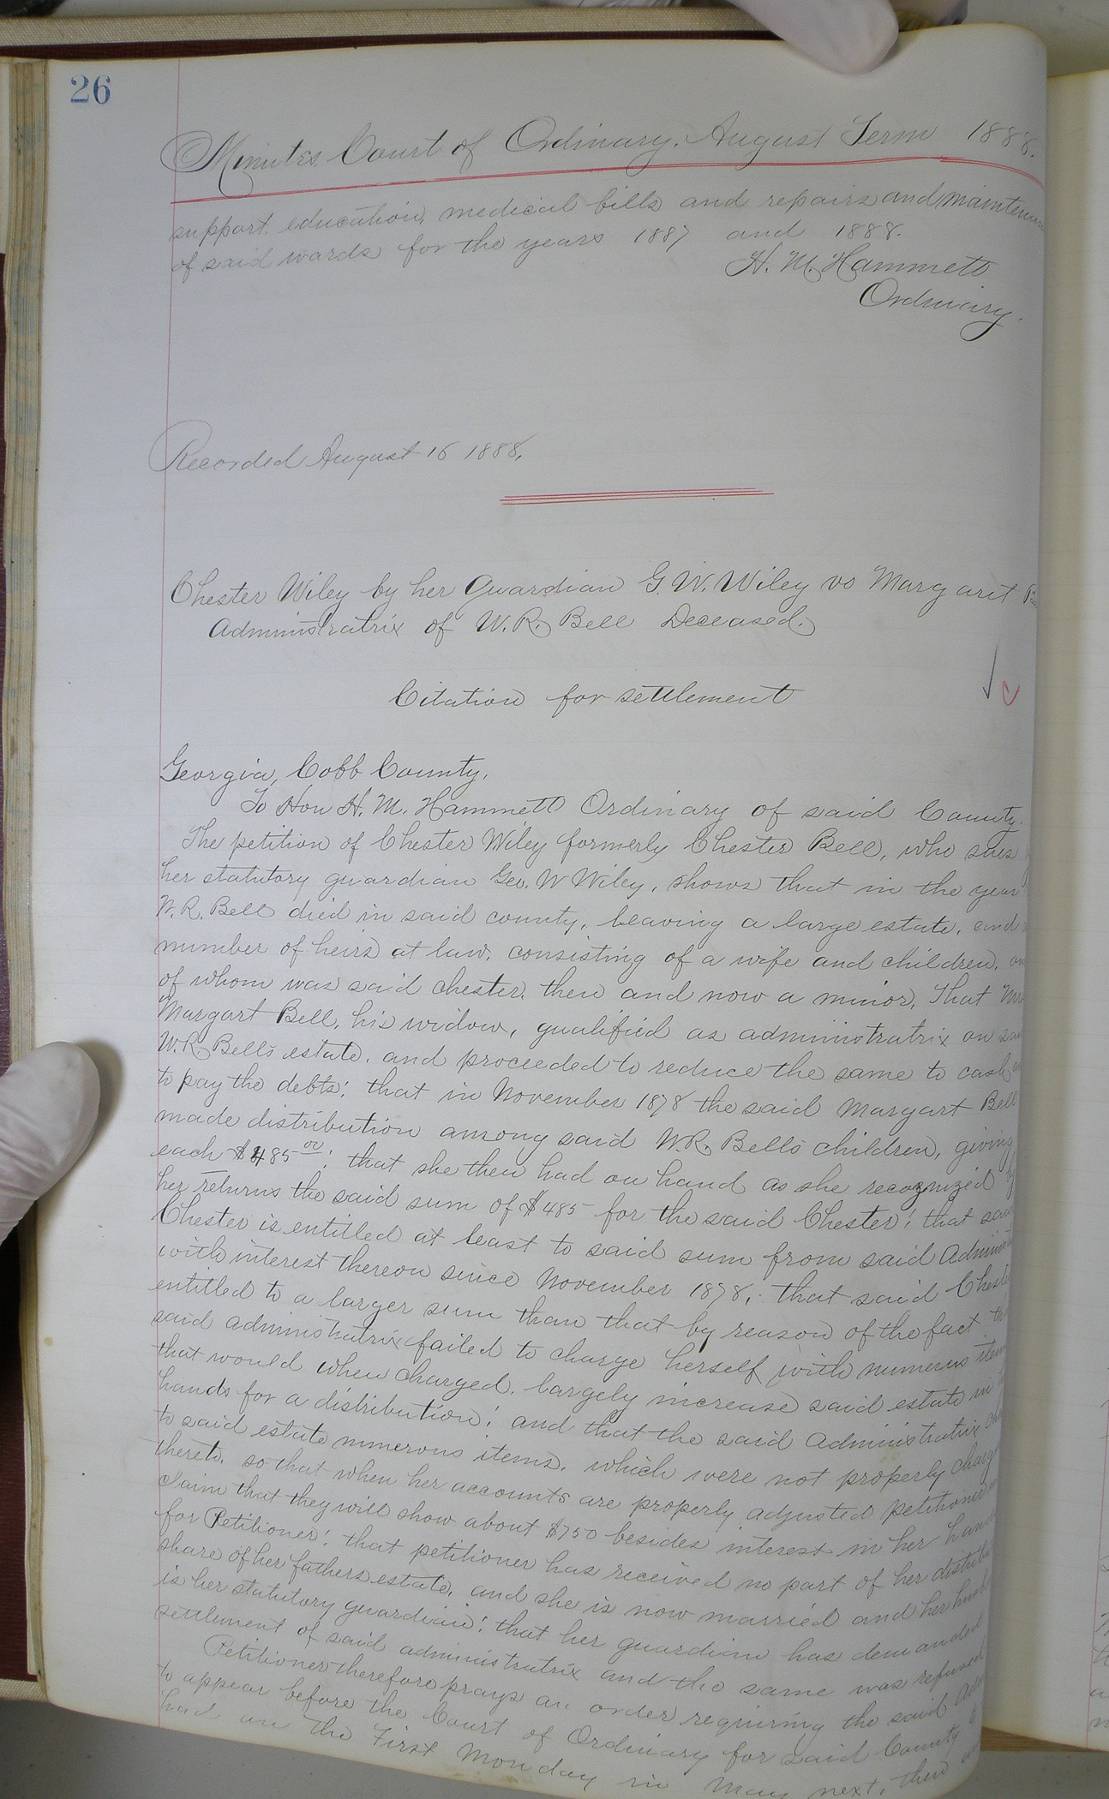 26
Minutes Court of Ordinary. August Term 1888.
support education, medical bills and repairs and
of said wards for the years 1887 and 1888.
H. M. Hammett
Ordinary.
Recorded August 16 1888.
Chester Wiley by her Guardian G. W. Wiley vs Margarit
Administratrix of W. R. Bell Deceased.
Citation for settlement
c
Georgia, Cobb County.
To Hon H. M. Hammett Ordinary of said County.
The petition of Chester Wiley formerly Chester Bell, who sues
her statutory guardian Geo. W Wiley, shows that in the year
W. R. Bell died in said county, leaving a large estate, and
number of heirs at law, consisting of a wife and children,
of whom was said chester, then and now a minor, That
Margart Bell, his widow, qualified as administratrix on
W. R. Bells estate, and proceeded to reduce the same to cash
to pay the debts; that in November 1878 the said Margart Bell
made distribution among said W. R. Bells children, giving
each $485 00; that she then had on hand as she recognized
her returns the said sum of $485 for the said Chester; that
Chester is entitled at least to said sum from said
with interest thereon since November 1878; that said
entitled to a larger sum than that by reason of the fact
said administratrix failed to charge herself with numerus
that would when charged, largely increase said estate in
hands for a distribution; and that the said Administratrix
to said estate numerous items, which were not properly
thereto, so that when her accounts are properly adjusted petitioner
claim that they will show about $750 besides interest in her
for Petitioner; that petitioner has received no part of her
share of her fathers estate, and she is now married and her
is her statutory guardian; that her guardian has demanded
settlement of said administratrix and the same was refused
Petitioner therefore prays an order requiring the said
to appear before the Court of Ordinary for said County
had on the First Monday in May next, then